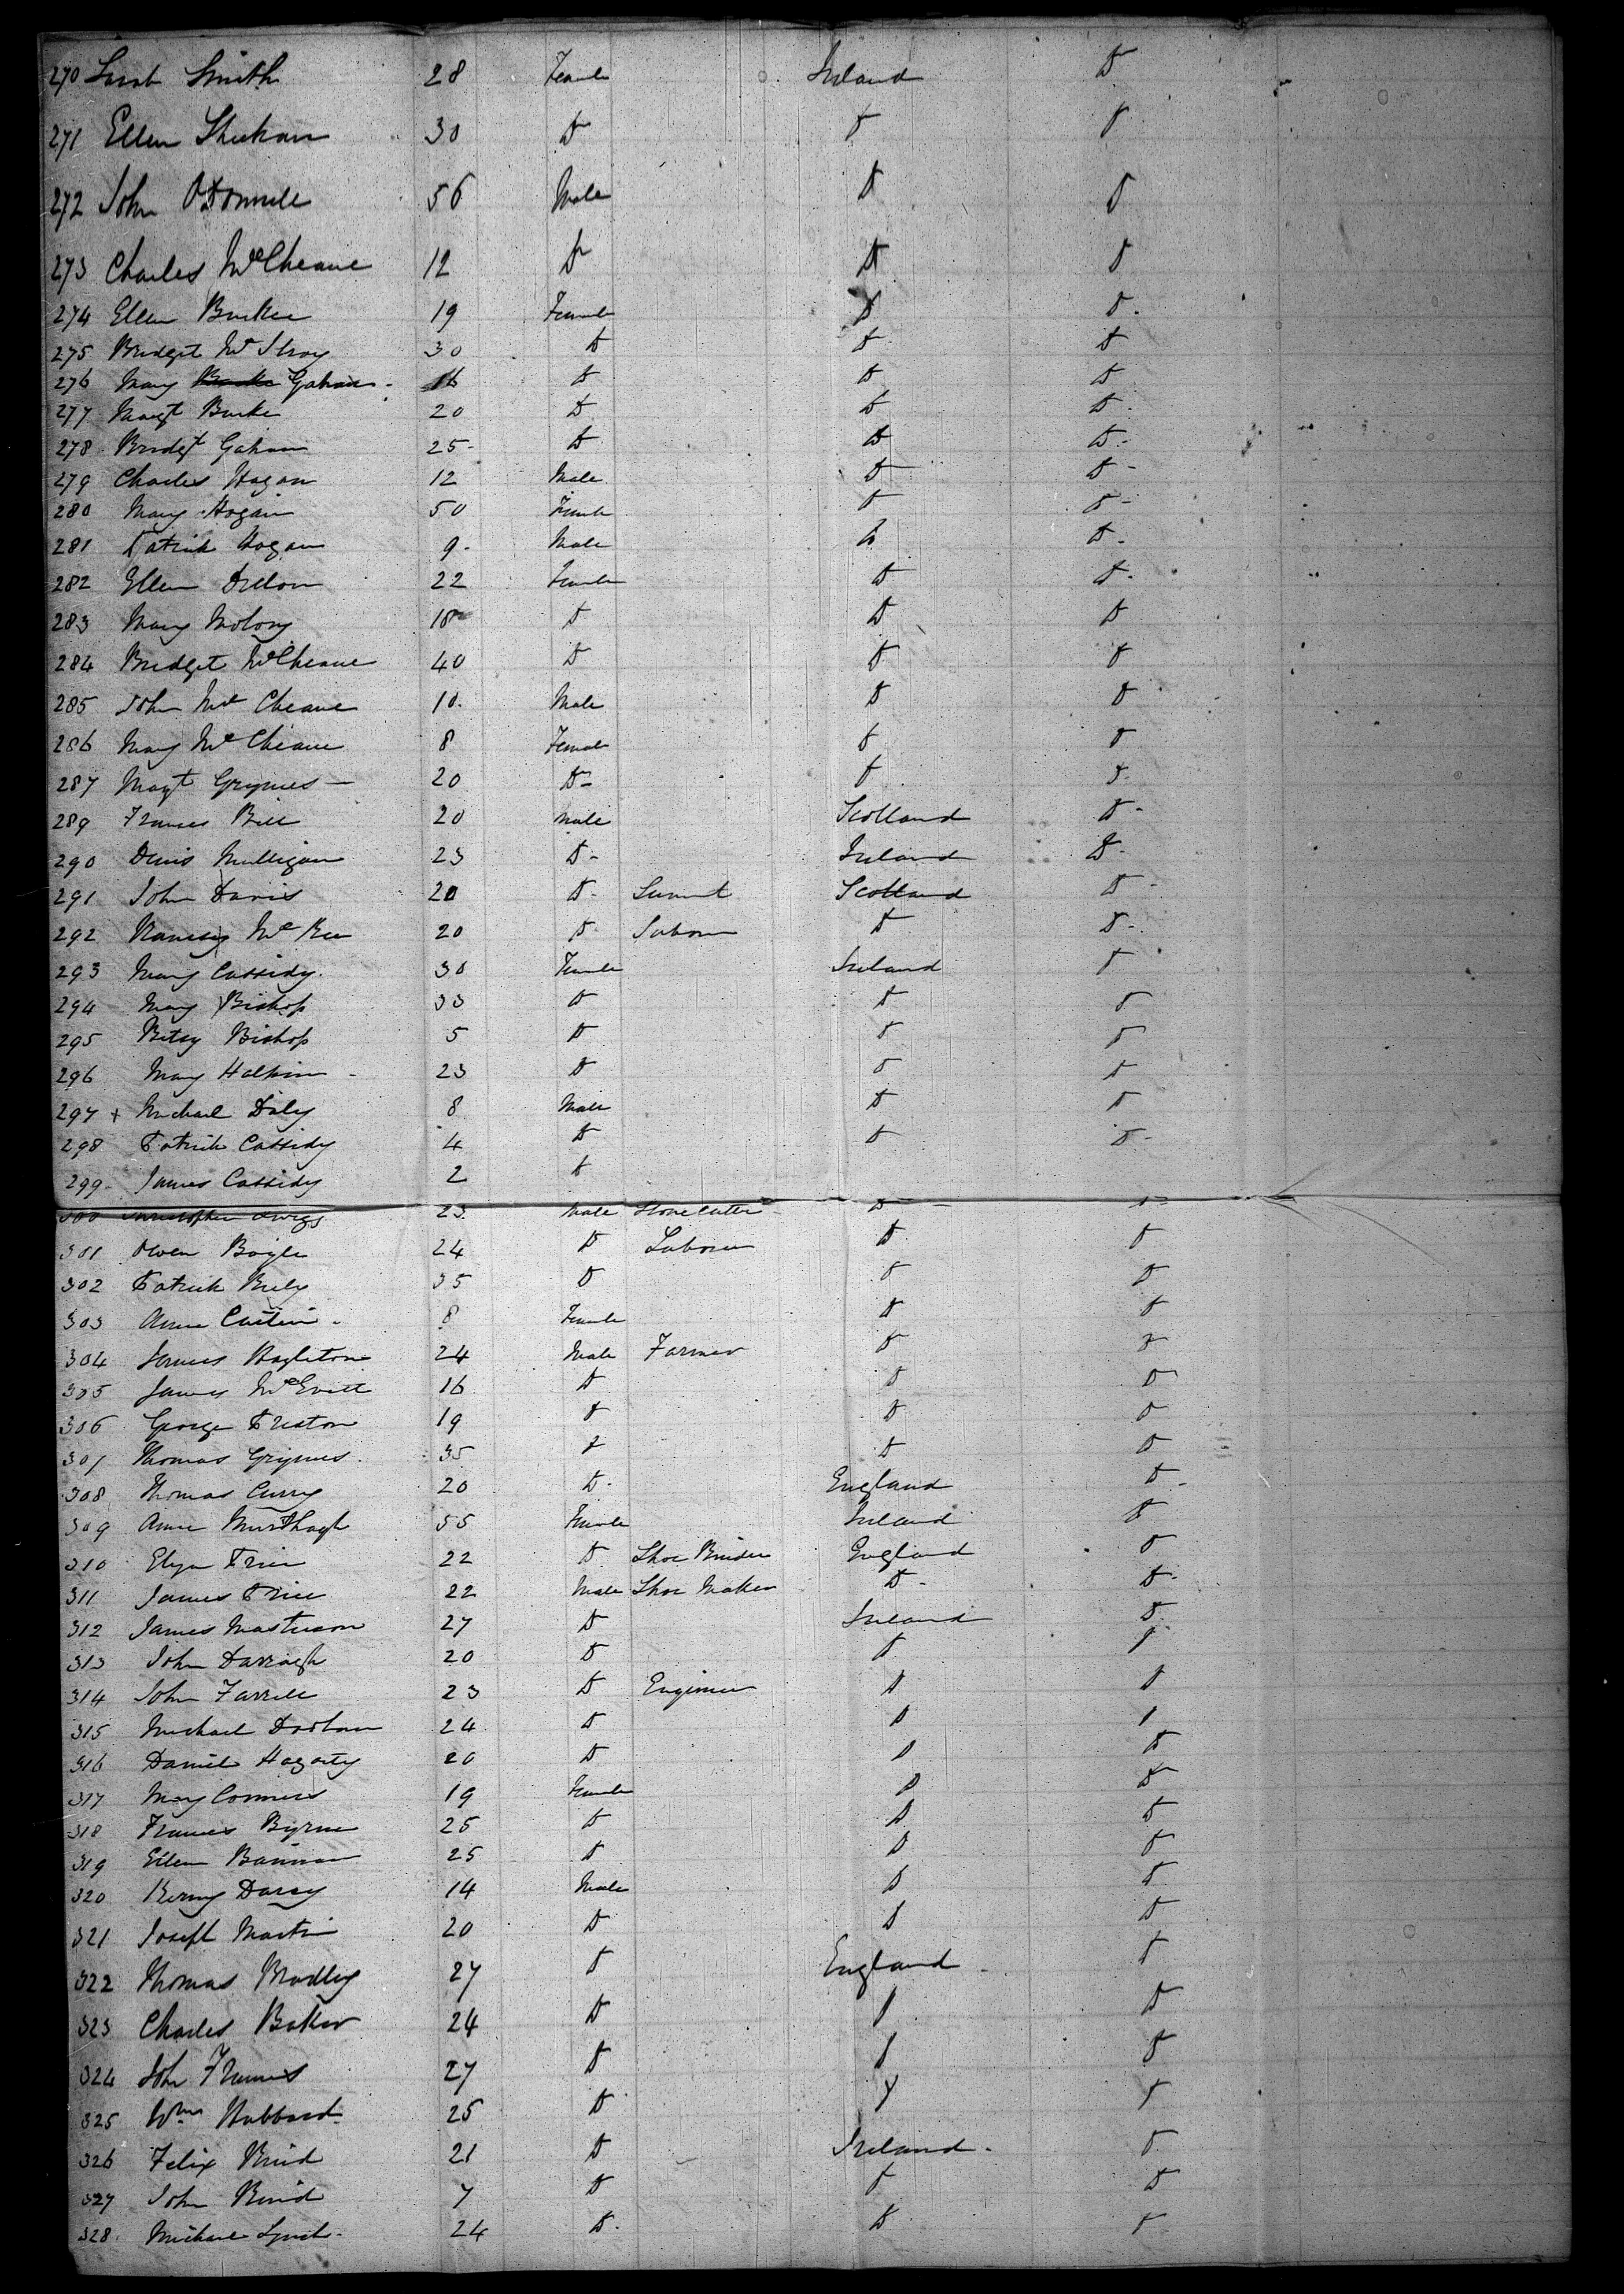 270 Sarah Smith 28 Female Ireland Do
271 Ellen Sheehan 30 Do Do Do
272 John ODonnell 56 Male Do Do
273 Charles McCheane 12 Do Do Do
274 Ellen Burke 19 Female Do Do
275 Bridget McIlroy 30 Do Do Do
276 Mary Gahan 16 Do Do Do
277 Margt Burke 20 Do Do Do
278 Bridgt Gahan 25 Do Do Do
279 Charles Hogan 12 Male Do Do
280 Mary Hogan 50 Female Do Do
281 Patrick Hogan 9 Male Do Do
282 Ellen Dillon 22 Female Do Do
283 Mary Molony 18 Do Do Do
284 Bridget McCheane 40 Do Do Do
285 John McCheane 10 Male Do Do
286 Mary McCheane 8 Female Do Do
287 Margt Grymes 20 Do Do Do
289 Frances Bell 20 Male Scotland Do
290 Denis Mulligan 23 Do Ireland Do
291 John Davis 20 Do Servant Scotland Do
292 McKee 20 Do Laborer Do Do
293 Mary Cassidy 30 Female Ireland Do
294 Mary Bishop 33 Do Do Do
295 Betsy Bishop 5 Do Do Do
296 Mary Halpin 23 Do Do Do
297 + Michael Daly 8 Male Do Do
298 Patrick Cassidy 4 Do Do Do
299 James Cassidy 2 Do
300 Christopher 23 Male Stone Cutter Do Do
301 Owen Boyle 24 Do Laborer Do Do
302 Patrick 35 Do Do Do
303 Anne 8 Female Do Do
304 James Hagleton 24 Male Farmer Do Do
305 James McEvitt 16 Do Do Do
306 George Preston 19 Do Do Do
307 Thomas Grymes 35 Do Do Do
308 Thomas Curry 20 Do England Do
309 Anne Murthagh 55 Female Ireland Do
310 Eliza Price 22 Do Shoe Binder England Do
311 James Price 22 Male Shoe Maker Do Do
312 James Masterson 27 Do Ireland Do
313 John Darragh 20 Do Do Do
314 John Farrell 23 Do Engineer Do Do
315 Michael Doolan 24 Do Do Do
316 Daniel Hagarty 20 Do Do Do
317 Mary Connors 19 Female Do Do
318 Frances Byrne 25 Do Do Do
319 Ellen Bannan 25 Do Do Do
320 Berny Darcy 14 Male Do Do
321 Joseph Martin 20 Do Do Do
322 Thomas Bradley 27 Do England Do
323 Charles Baker 24 Do Do Do
324 John Frances 27 Do Do Do
325 Wm Hubbard 25 Do Do Do
326 Felix 21 Do Ireland Do
327 John 7 Do Do Do
328 Michael Lynch 24 Do Do Do